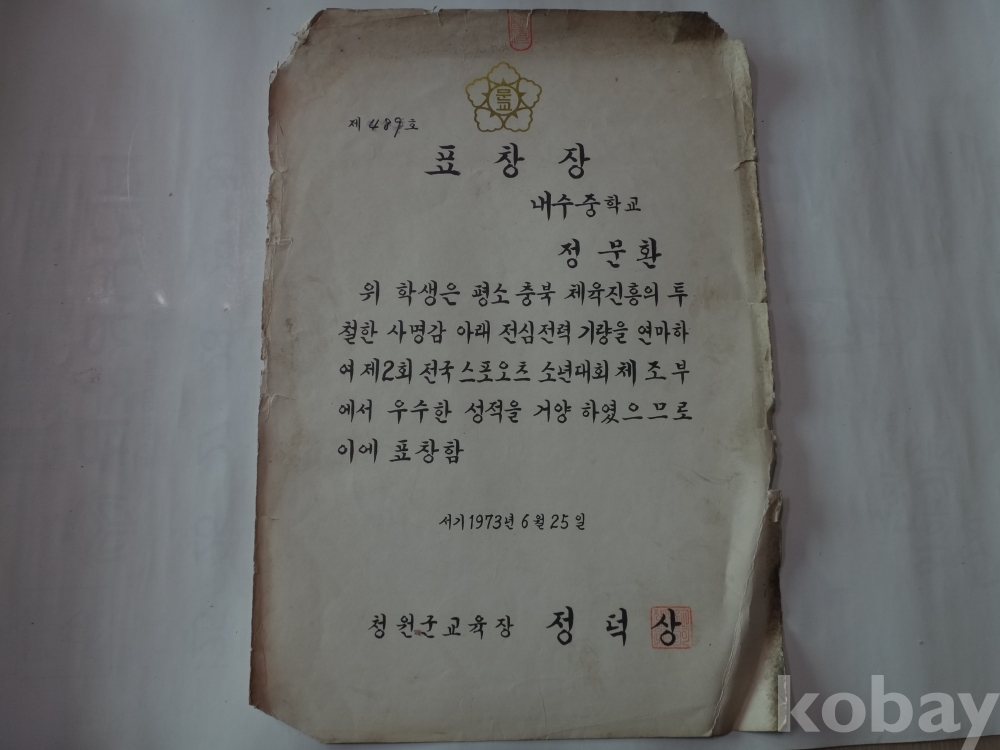 문교
제 489 호
표 창 장
내수중학교
정 문 환
위 학생은 평소 충북 체육진흥의 투
철한 사명감 아래 전심전력 기량을 연마하
여 제2회 전국 스포오츠 소년대회 체 조 부
에서 우수한 성적을 거양 하였으므로
이에 표창함
서기 1973년 6월 25일
청원군교육장 정 덕 상
kobay